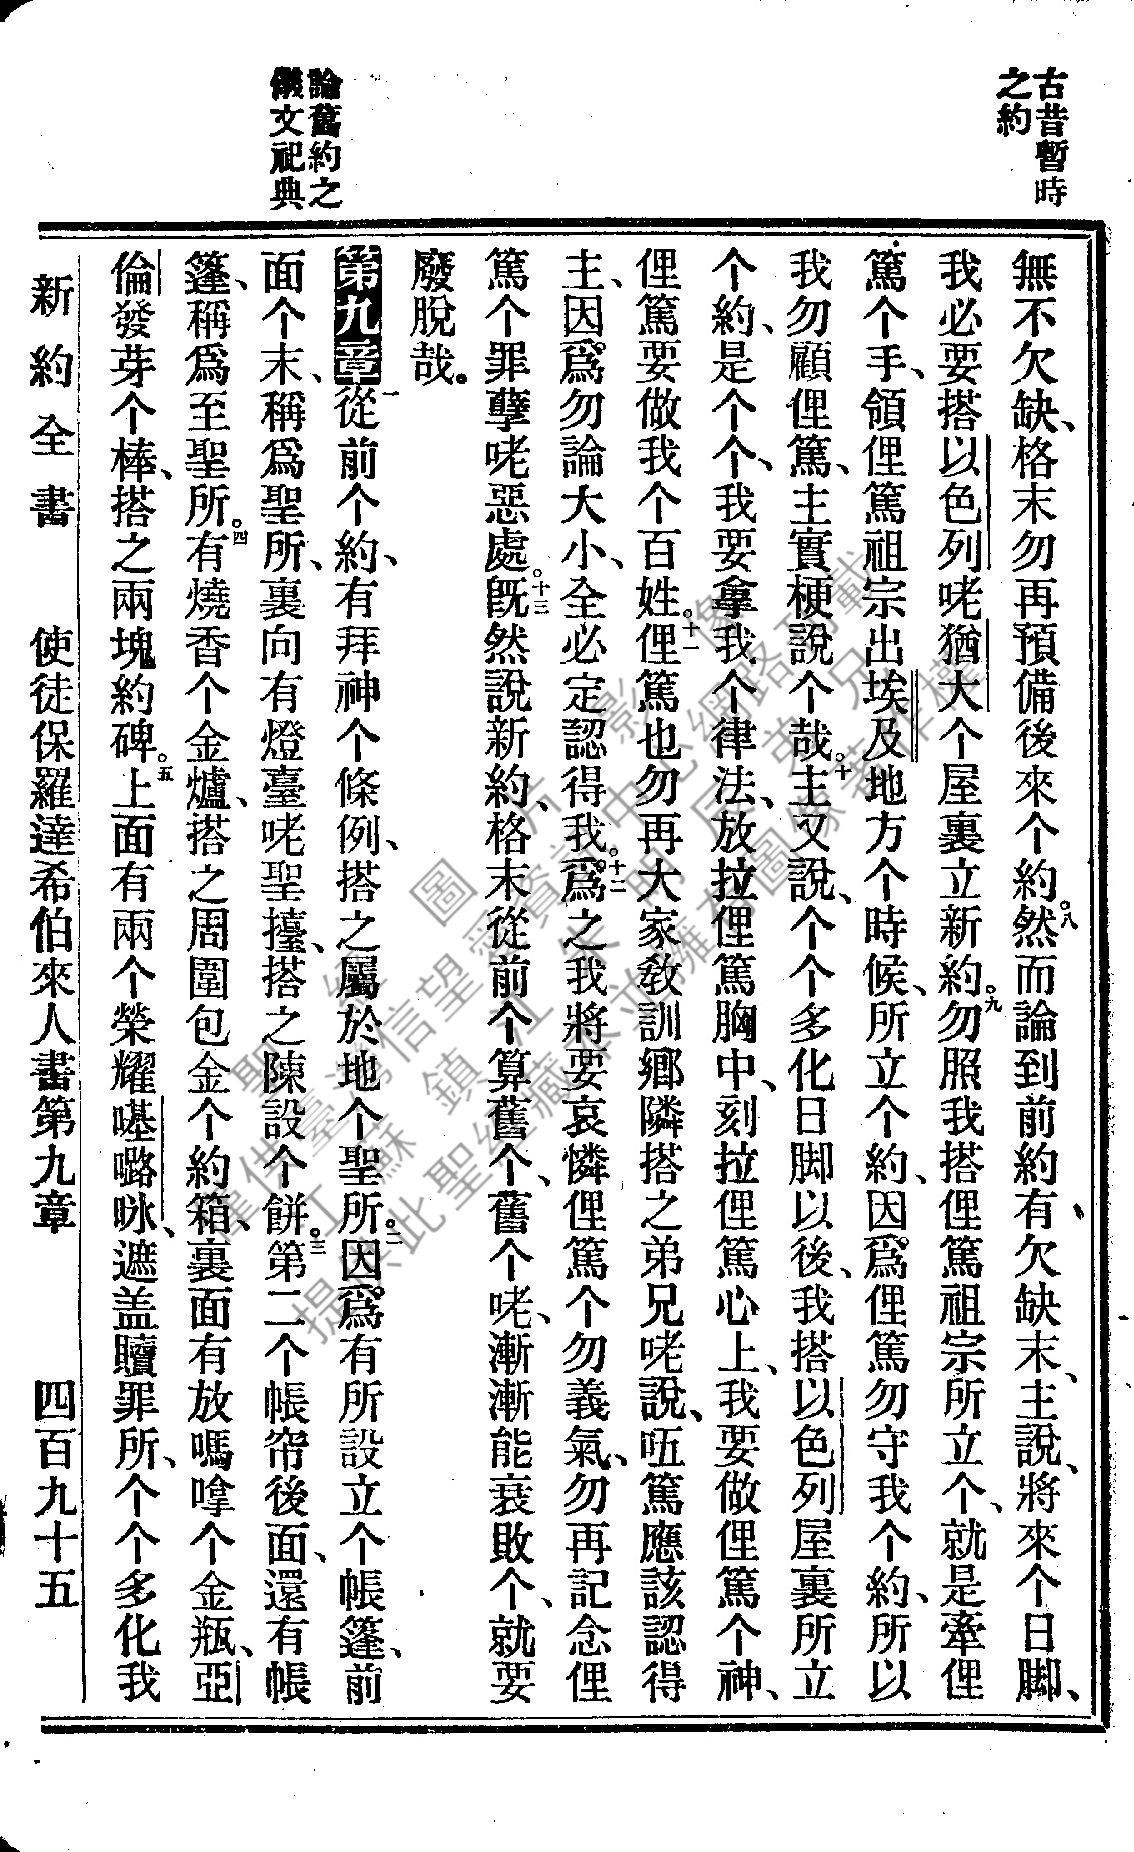 古昔暫時
之約
論舊約之
儀文祀典
無不欠缺、格末勿再預備後來个約。八然而論到前約有欠缺末、主說、將來个日脚、
我必要搭以色列咾猶大个屋裏立新約。九勿照我搭俚篤祖宗所立个、就是牽俚
篤个手、領俚篤祖宗出埃及地方个時候、所立个約、因爲俚篤勿守我个約、所以
我勿顧俚篤、主實梗說个哉。十主又說、个个多化日脚以後、我搭以色列屋裏所立
个約、是个个、我要拿我个律法、放拉俚篤胸中、刻拉俚篤心上、我要做俚篤个神、
俚篤要做我个百姓。十一俚篤也勿再大家敎訓鄉隣搭之弟兄咾說、㕶篤應該認得
主、因爲勿論大小、全必定認得我。十二爲之我將要哀憐俚篤个勿義氣、勿再記念俚
篤个罪孽咾惡處。十三旣然說新約、格末從前个算舊个、舊个咾、漸漸能衰敗个、就要
廢脫哉。
第九章一從前个約、有拜神个條例、搭之屬於地个聖所。二因爲有所設立个帳篷、前
面个末、稱爲聖所、裏向有燈臺咾聖擡、搭之陳設个餅。三第二个帳帘後面、還有帳
篷、稱爲至聖所。四有燒香个金爐、搭之周圍包金个約箱、裏面有放嗎嗱个金瓶、亞
倫發芽个棒、搭之兩塊約碑。五上面有兩个榮耀𠺝嚧㖠、遮盖贖罪所、个个多化我
新約全書　使徒保羅達希伯來人書第九章　四百九十五
聖經圖片影像
僅供臺灣信望愛資訊中心網路刊載